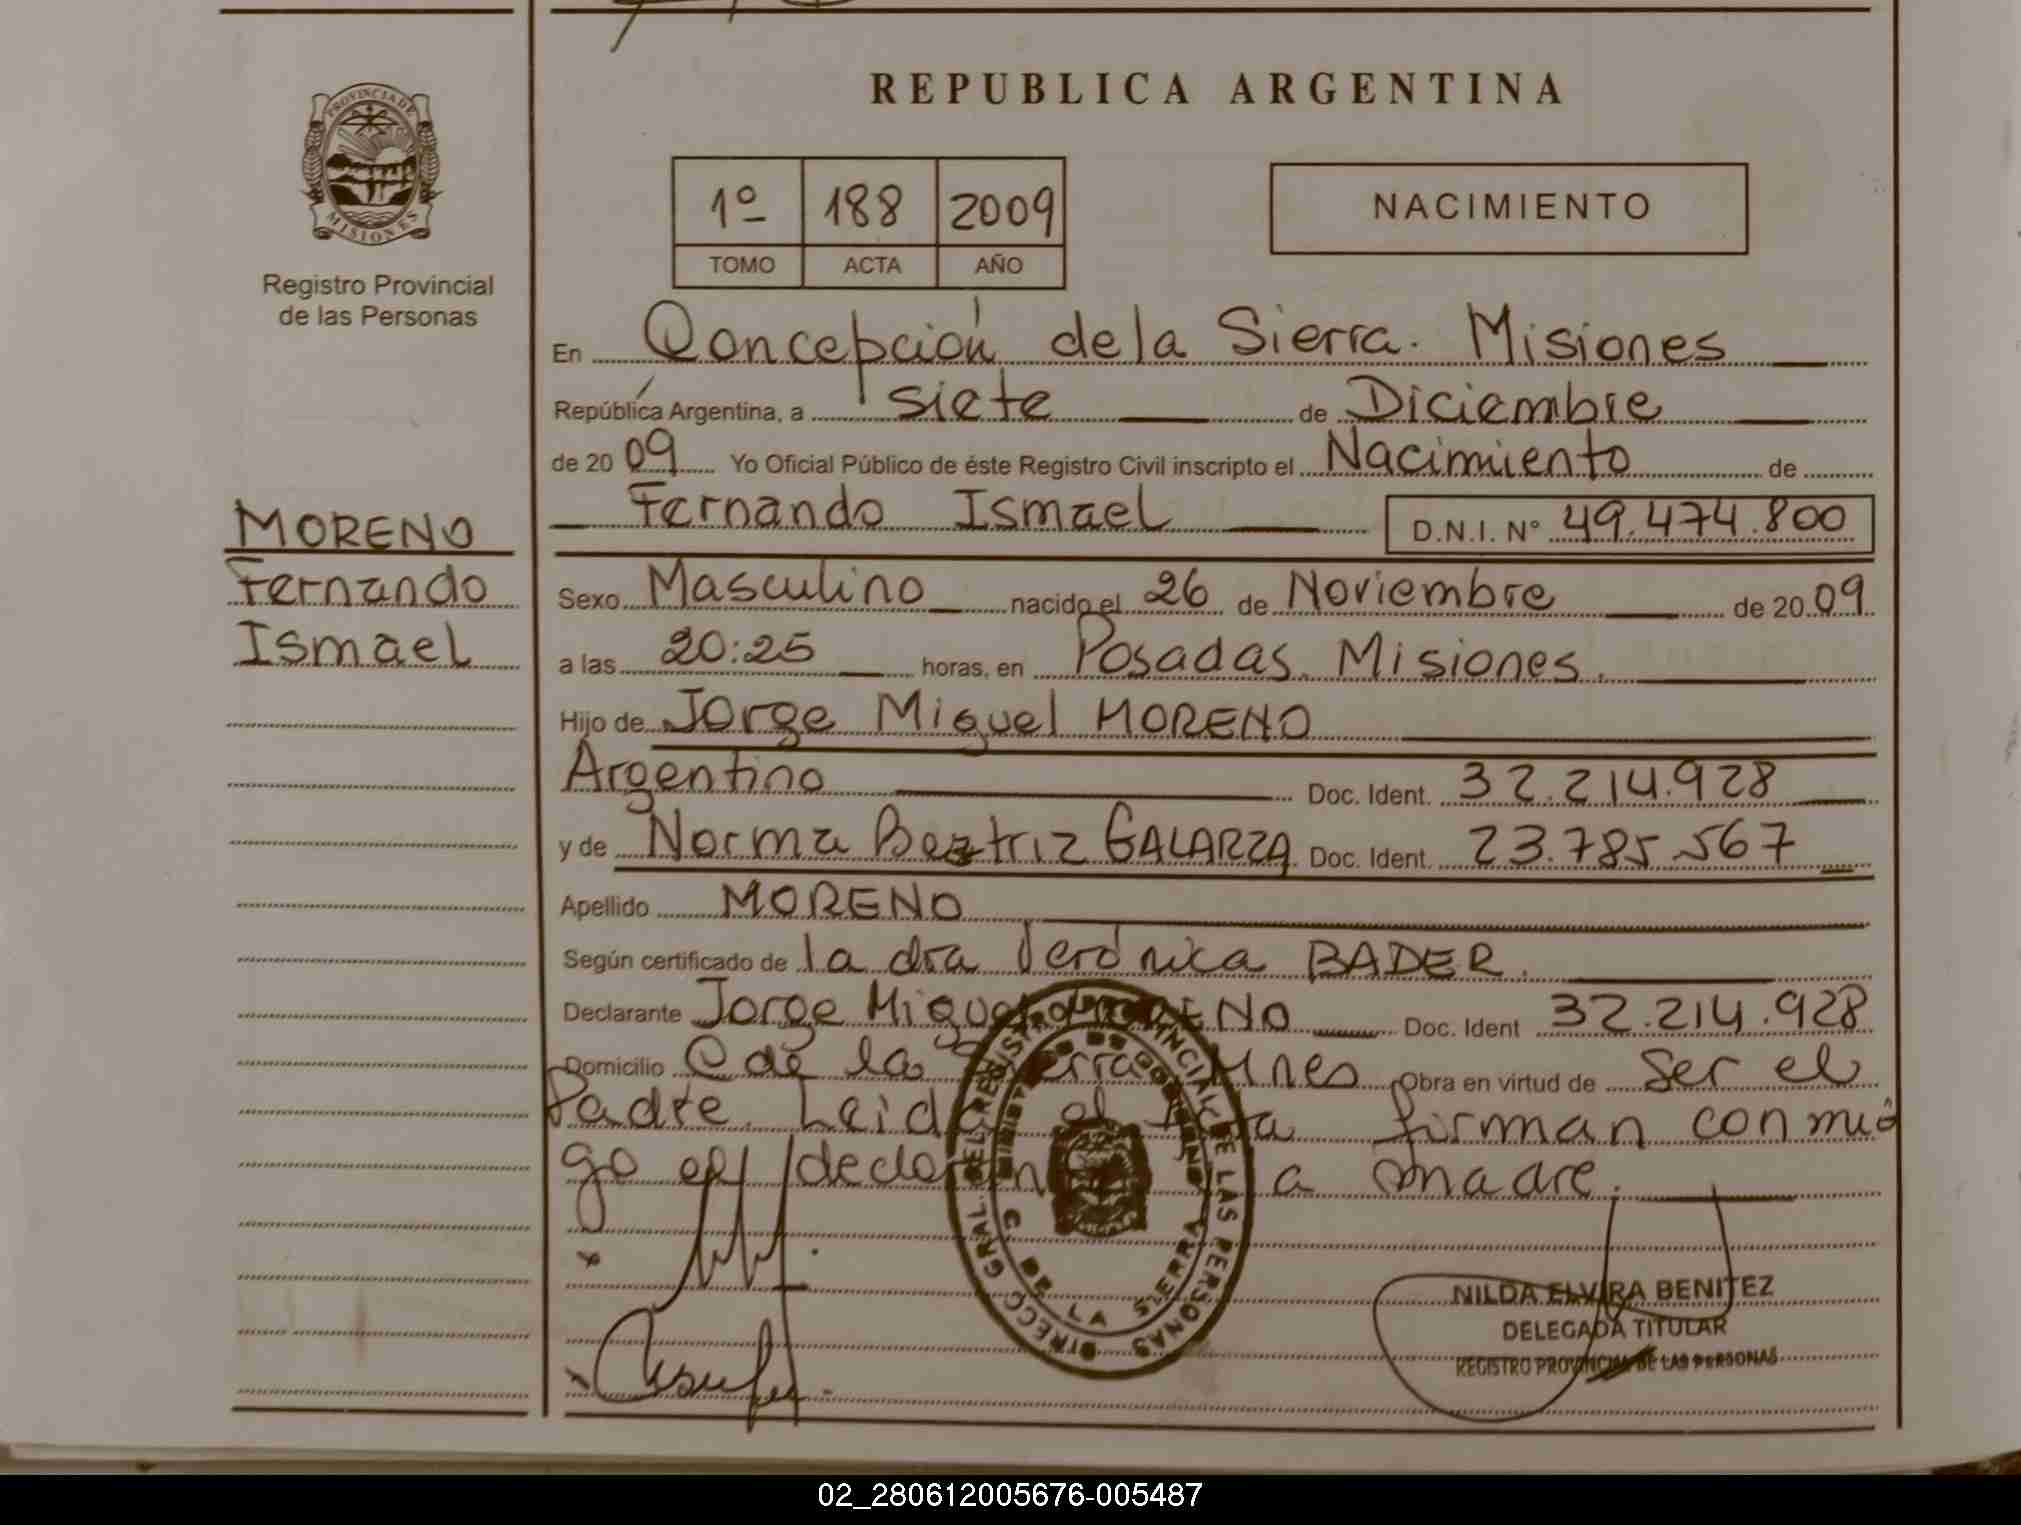 REPUBLICA ARGENTINA
PROVINCIA DE
MISIONES
Registro Provincial
de las Personas
1º 188 2009
TOMO ACTA AÑO
NACIMIENTO
En Concepción de la Sierra. Misiones
República Argentina, a siete de Diciembre
de 2009 Yo Oficial Público de éste Registro Civil inscripto el Nacimiento de
Fernando Ismael D.N.I. Nº 49.474.800
MORENO
Fernando
Ismael
Sexo Masculino nacido el 26 de Noviembre de 2009
a las 20:25 horas, en Posadas. Misiones.
Hijo de Jorge Miguel MORENO
Argentino Doc. Ident. 32.214.928
y de Norma Beatriz GALARZA Doc. Ident. 23.785.567
Apellido MORENO
Según certificado de la dra Verónica BADER.
Declarante Jorge Miguel MORENO Doc. Ident 32.214.928
Domicilio C de la Sierra Mnes Obra en virtud de ser el
Padre. Leida el Acta firman conmi
go el declarante y la madre.
DIRECC GRAL. DEL REGISTRO PROVINCIAL DE LAS PERSONAS
MINISTERIO DE GOBIERNO
C DE LA SIERRA
NILDA ELVIRA BENITEZ
DELEGADA TITULAR
REGISTRO PROVINCIAL DE LAS PERSONAS
02_280612005676-005487